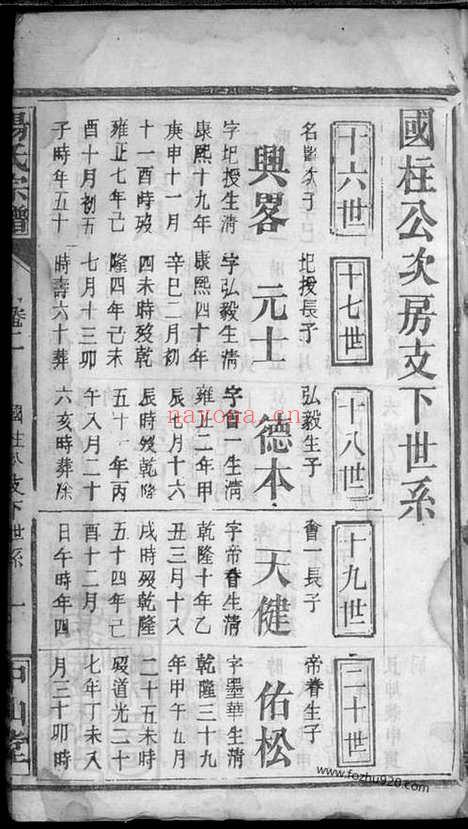 國柱公次房支下世系
十六世
次子
興畧
字圯授生清
康熙十九年
庚申十一月
十一酉時歿
雍正七年己
酉十月初五
子時年五十
十七世
圯授長子
元士
字弘毅生清
康熙四十年
辛巳二月初
四未時歿乾
隆四年己未
七月十三卯
時壽六十葬
十八世
弘毅生子
德本
字會一生清
雍正二年甲
辰十月十六
辰時歿乾隆
五十一年丙
午八月二十
六亥時葬除
十九世
會一長子
天健
字帝眷生清
乾隆十年乙
丑三月十八
戌時歿乾隆
五十四年己
酉十二月
日午時年四
二十世
帝眷生子
佑松
字墨華生清
乾隆三十九
年甲午九月
二十五未時
歿道光二十
七年丁未八
月三十卯時
楊氏宗譜
卷二
國柱公支下世系
一
山堂
nayona.cn
www.fozhu920.com